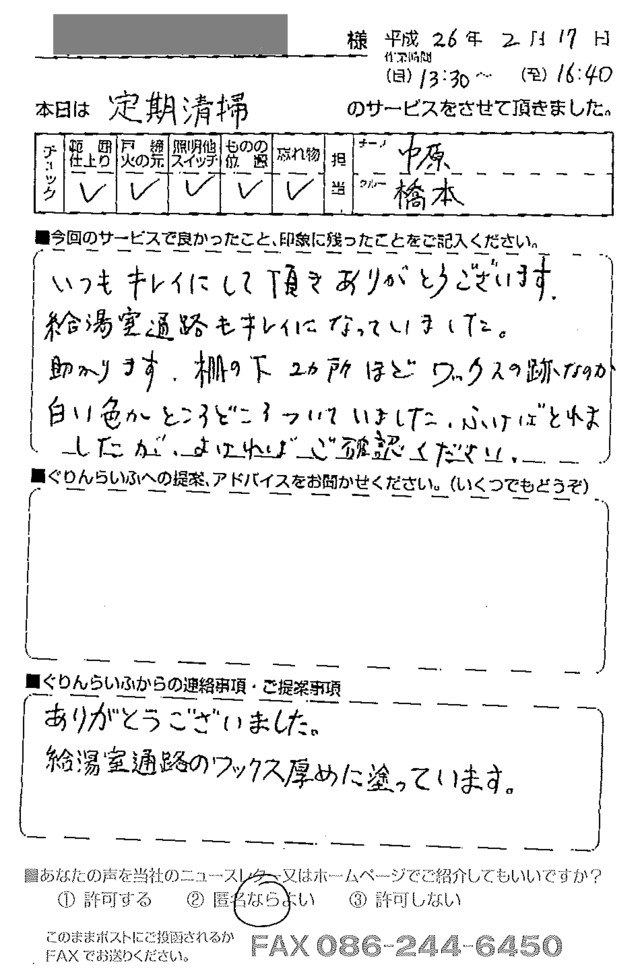 様 平成26年2月17日
作業時間
(自)13:30~ (至)16:40
本日は 定期清掃 のサービスをさせて頂きました。
チェック 範囲仕上り 戸締火の元 照明他スイッチ ものの位置 忘れ物 担当 チーフ 中原
✓ ✓ ✓ ✓ ✓ クルー 橋本
■今回のサービスで良かったこと、印象に残ったことをご記入ください。
いつもキレイにして頂きありがとうございます.
給湯室通路もキレイになっていました。
助かります. 棚の下 2ヵ所ほど ワックスの跡なのか
白い色がところどころついていました. ふけばとれま
したが、よければご確認ください.
■ぐりんらいふへの提案、アドバイスをお聞かせください。(いくつでもどうぞ)
■ぐりんらいふからの連絡事項・ご提案事項
ありがとうございました。
給湯室通路のワックス厚めに塗っています。
■あなたの声を当社のニュースレター又はホームページでご紹介してもいいですか?
① 許可する ② 匿名ならよい ③ 許可しない
このままポストにご投函されるか
FAXでお送りください。
FAX 086-244-6450